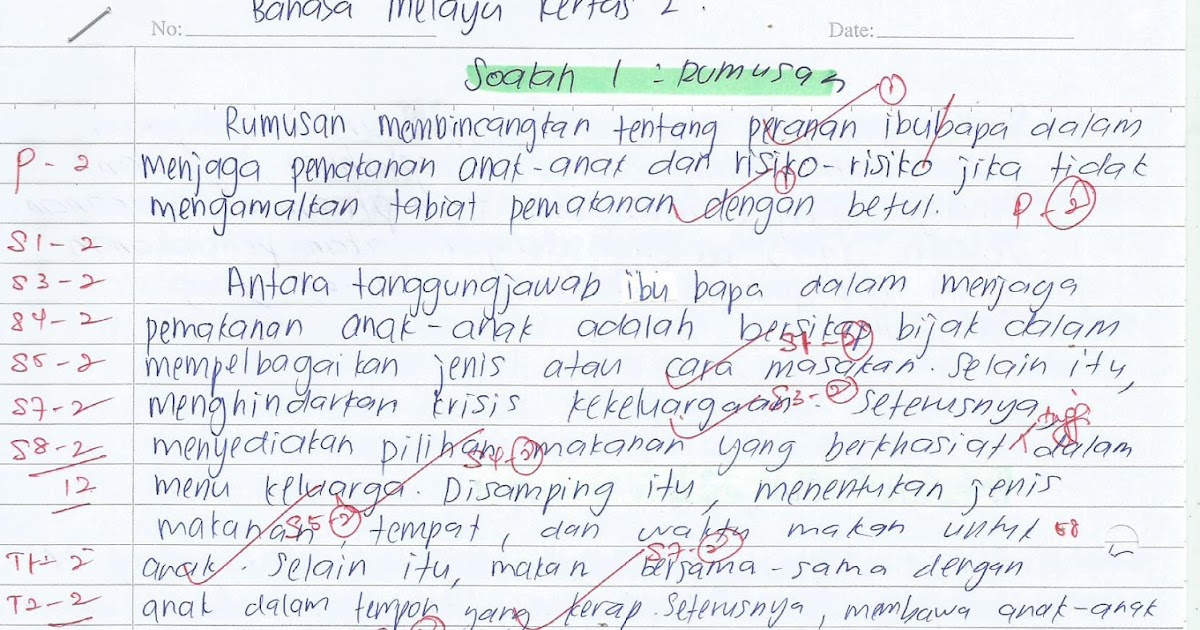 Bahasa Melayu Kertas 2.
No: Date:
Soalan 1 : Rumusan
1
Rumusan membincangkan tentang peranan ibubapa dalam
P - 2 menjaga pemakanan anak-anak dan risiko-risiko jika tidak
1
mengamalkan tabiat pemakanan dengan betul. P - 2
S1 - 2
S3 - 2 Antara tanggungjawab ibu bapa dalam menjaga
S4 - 2 pemakanan anak-anak adalah bersikap bijak dalam
S1 - 2
S5 - 2 mempelbagaikan jenis atau cara masakan. Selain itu,
S3 - 2
S7 - 2 menghindarkan krisis kekeluargaan. Seterusnya,
tinggi
S8 - 2 menyediakan pilihan makanan yang berkhasiat dalam
S4 - 2
12 menu keluarga. Disamping itu, menentukan jenis
S5 - 2
makanan, tempat, dan waktu makan untuk 58
S7 - 2
T1 - 2 anak. Selain itu, makan bersama-sama dengan
T2 - 2 anak dalam tempoh yang kerap. Seterusnya, membawa anak-anak